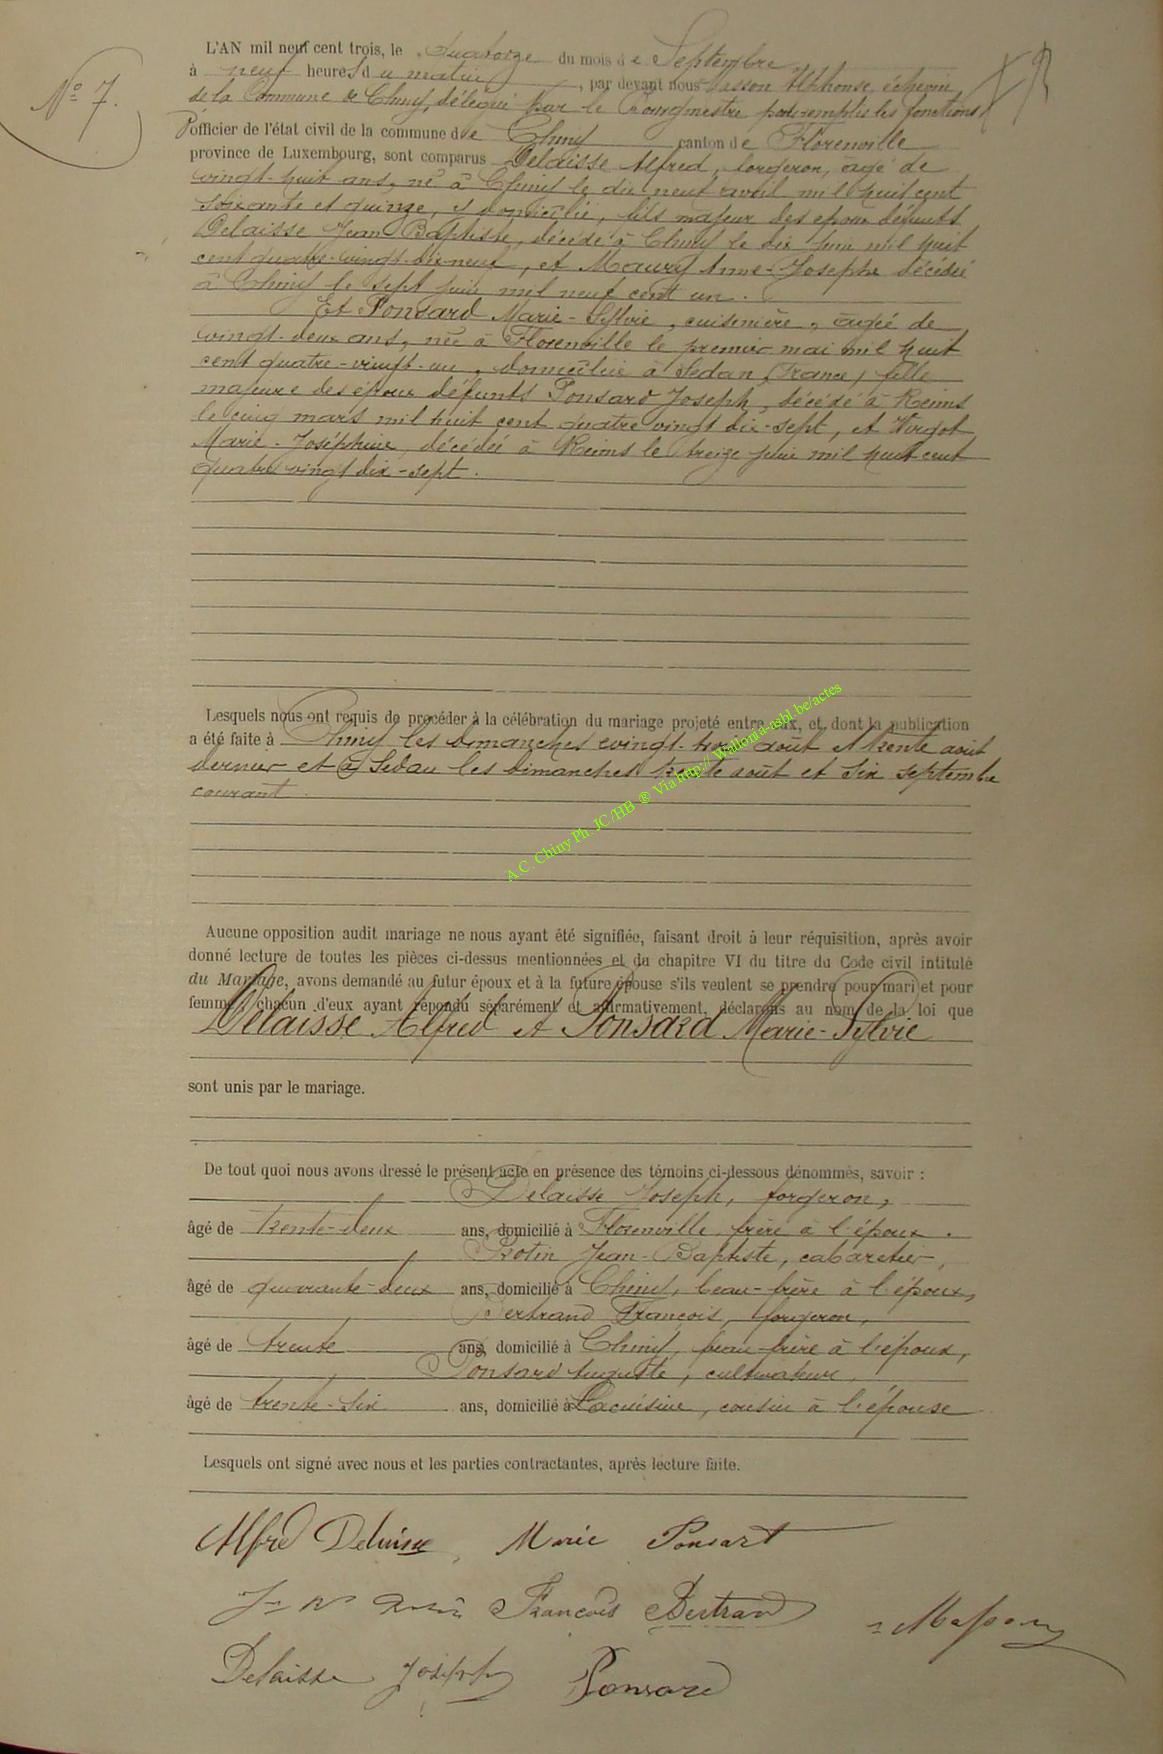 N° 7.
L'AN mil neuf cent trois, le quatorze du mois de Septembre,
à neuf heures du matin, par devant nous Masson Alphonse, échevin
de la Commune de Chiny, délégué par le Bourgmestre pour remplir les fonctions
d'officier de l'état civil de la commune de Chiny canton de Florenville
province de Luxembourg, sont comparus Delaisse Alfred, forgeron, âgé de
vingt-huit ans, né à Chiny le dix neuf avril mil huit cent
soixante et quinze, y domicilié, fils majeur des époux défunts
Delaisse Jean Baptiste, décédé à Chiny le dix juin mil huit
cent quatre-vingt-dix-neuf, et Maury Anne-Josephe décédée
à Chiny le sept juin mil neuf cent un.
Et Ponsard Marie-Sylvie, cuisinière, âgée de
vingt-deux ans, née à Florenville le premier mai mil huit
cent quatre-vingt-un, domiciliée à Sedan (France) fille
majeure des époux défunts Ponsard Joseph, décédé à Reims
le cinq mars mil huit cent quatre vingt dix-sept, et Virgot
Marie-Joséphine, décédée à Reims le treize juin mil huit cent
quatre vingt dix-sept.
Lesquels nous ont requis de procéder à la célébration du mariage projeté entre eux, et dont la publication
a été faite à Chiny les dimanches vingt-trois août et trente août
dernier et à Sedan les dimanches trente août et six septembre
courant.
A.C. Chiny Ph. JC/HB ® Via http://Wallonia-asbl.be/actes
Aucune opposition audit mariage ne nous ayant été signifiée, faisant droit à leur réquisition, après avoir
donné lecture de toutes les pièces ci-dessus mentionnées et du chapitre VI du titre du Code civil intitulé
du Mariage, avons demandé au futur époux et à la future épouse s'ils veulent se prendre pour mari et pour
femme; chacun d'eux ayant répondu séparément et affirmativement, déclarons au nom de la loi que
Delaisse Alfred et Ponsard Marie-Sylvie
sont unis par le mariage.
De tout quoi nous avons dressé le présent acte en présence des témoins ci-dessous dénommés, savoir :
Delaisse Joseph, forgeron,
âgé de trente-deux ans, domicilié à Florenville, frère à l'époux.
Rotin Jean-Baptiste, cabaretier,
âgé de quarante-deux ans, domicilié à Chiny, beau-frère à l'époux,
Bertrand François, forgeron,
âgé de trente ans, domicilié à Chiny, beau-frère à l'époux,
Ponsard Auguste, cultivateur,
âgé de trente-six ans, domicilié à Lacuisine, cousin à l'épouse
Lesquels ont signé avec nous et les parties contractantes, après lecture faite.
Alfred Delaisse Marie Ponsart
François Bertrand
Masson
Delaisse Joseph Ponsard